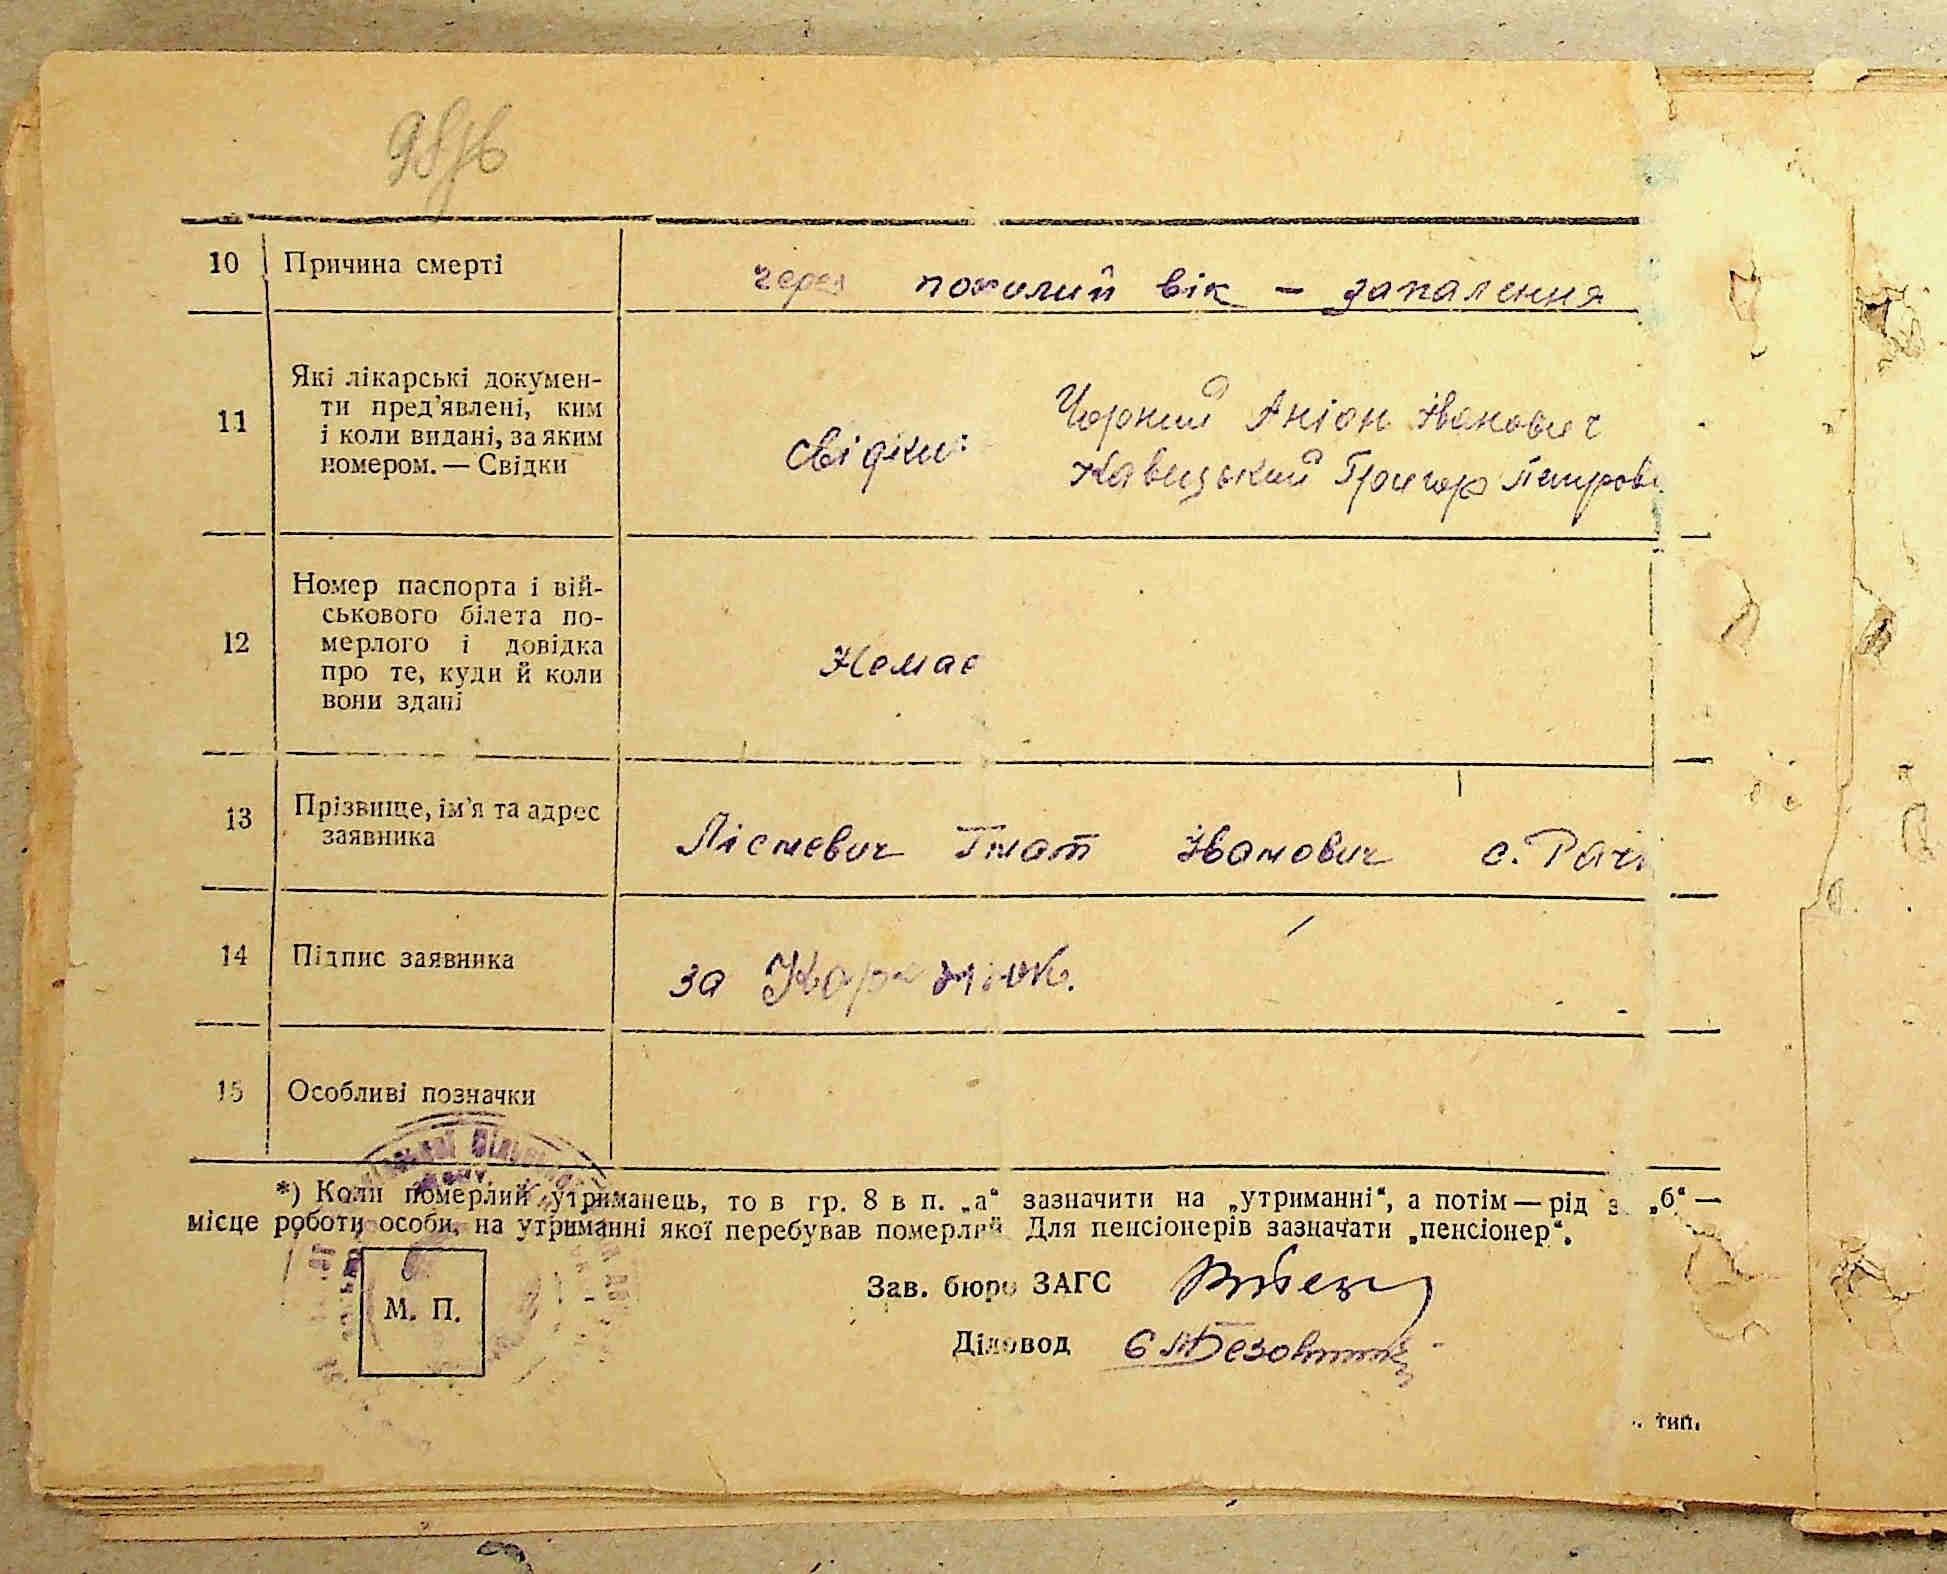 98/6
10 Причина смерті
через похилий вік – запалення
11 Які лікарські докумен-
ти пред'явлені, ким
і коли видані, за яким
номером. — Свідки
свідки:
Чорний Антон Іванович
Кавецький Григор Петров
12 Номер паспорта і вій-
ськового білета по-
мерлого і довідка
про те, куди й коли
вони здані
Немає
13 Прізвище, ім'я та адрес
заявника
Лісневич Гнат Іванович с. Рачк
14 Підпис заявника
за
15 Особливі позначки
*) Коли померлий утриманець, то в гр. 8 в п. „а“ зазначити на „утриманні“, а потім — рід з „б“ —
місце роботи особи, на утриманні якої перебував померлий Для пенсіонерів зазначати „пенсіонер“.
М. П.
Зав. бюро ЗАГС
Діловод
тип.